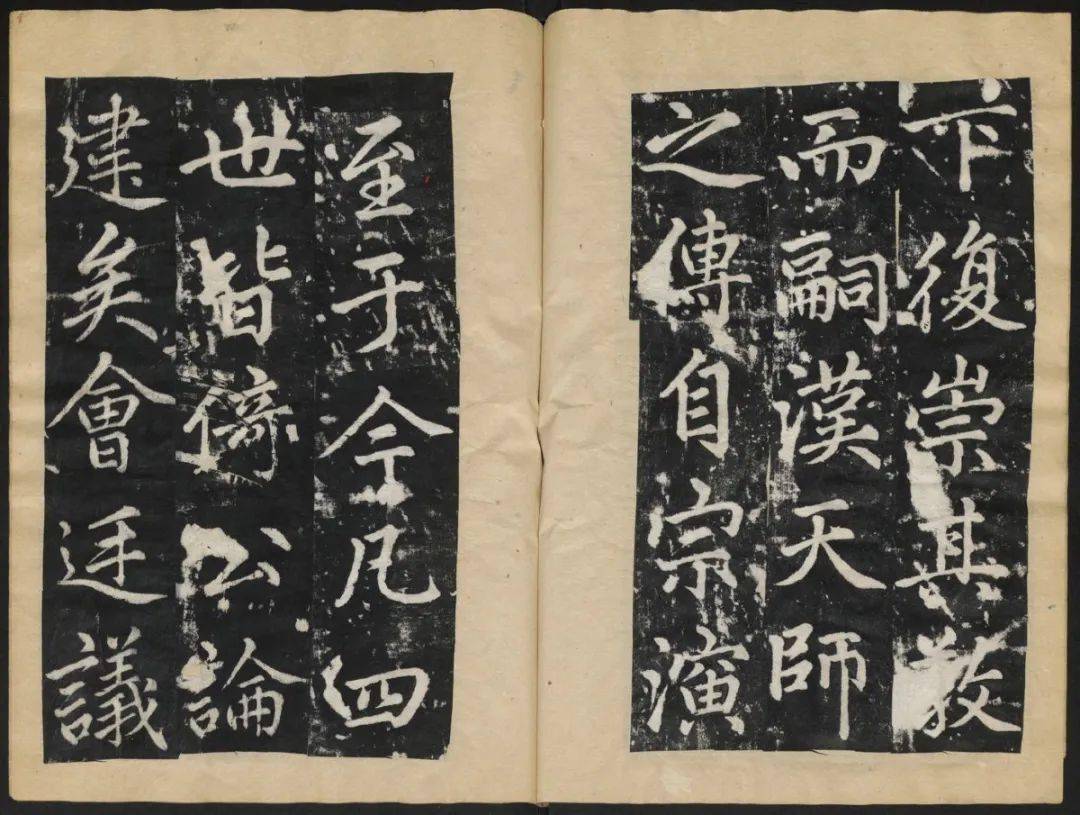 卞復崇其教
而嗣漢天師
之傳自宗演
至于今凡四
世皆倚公論
建矣會廷議